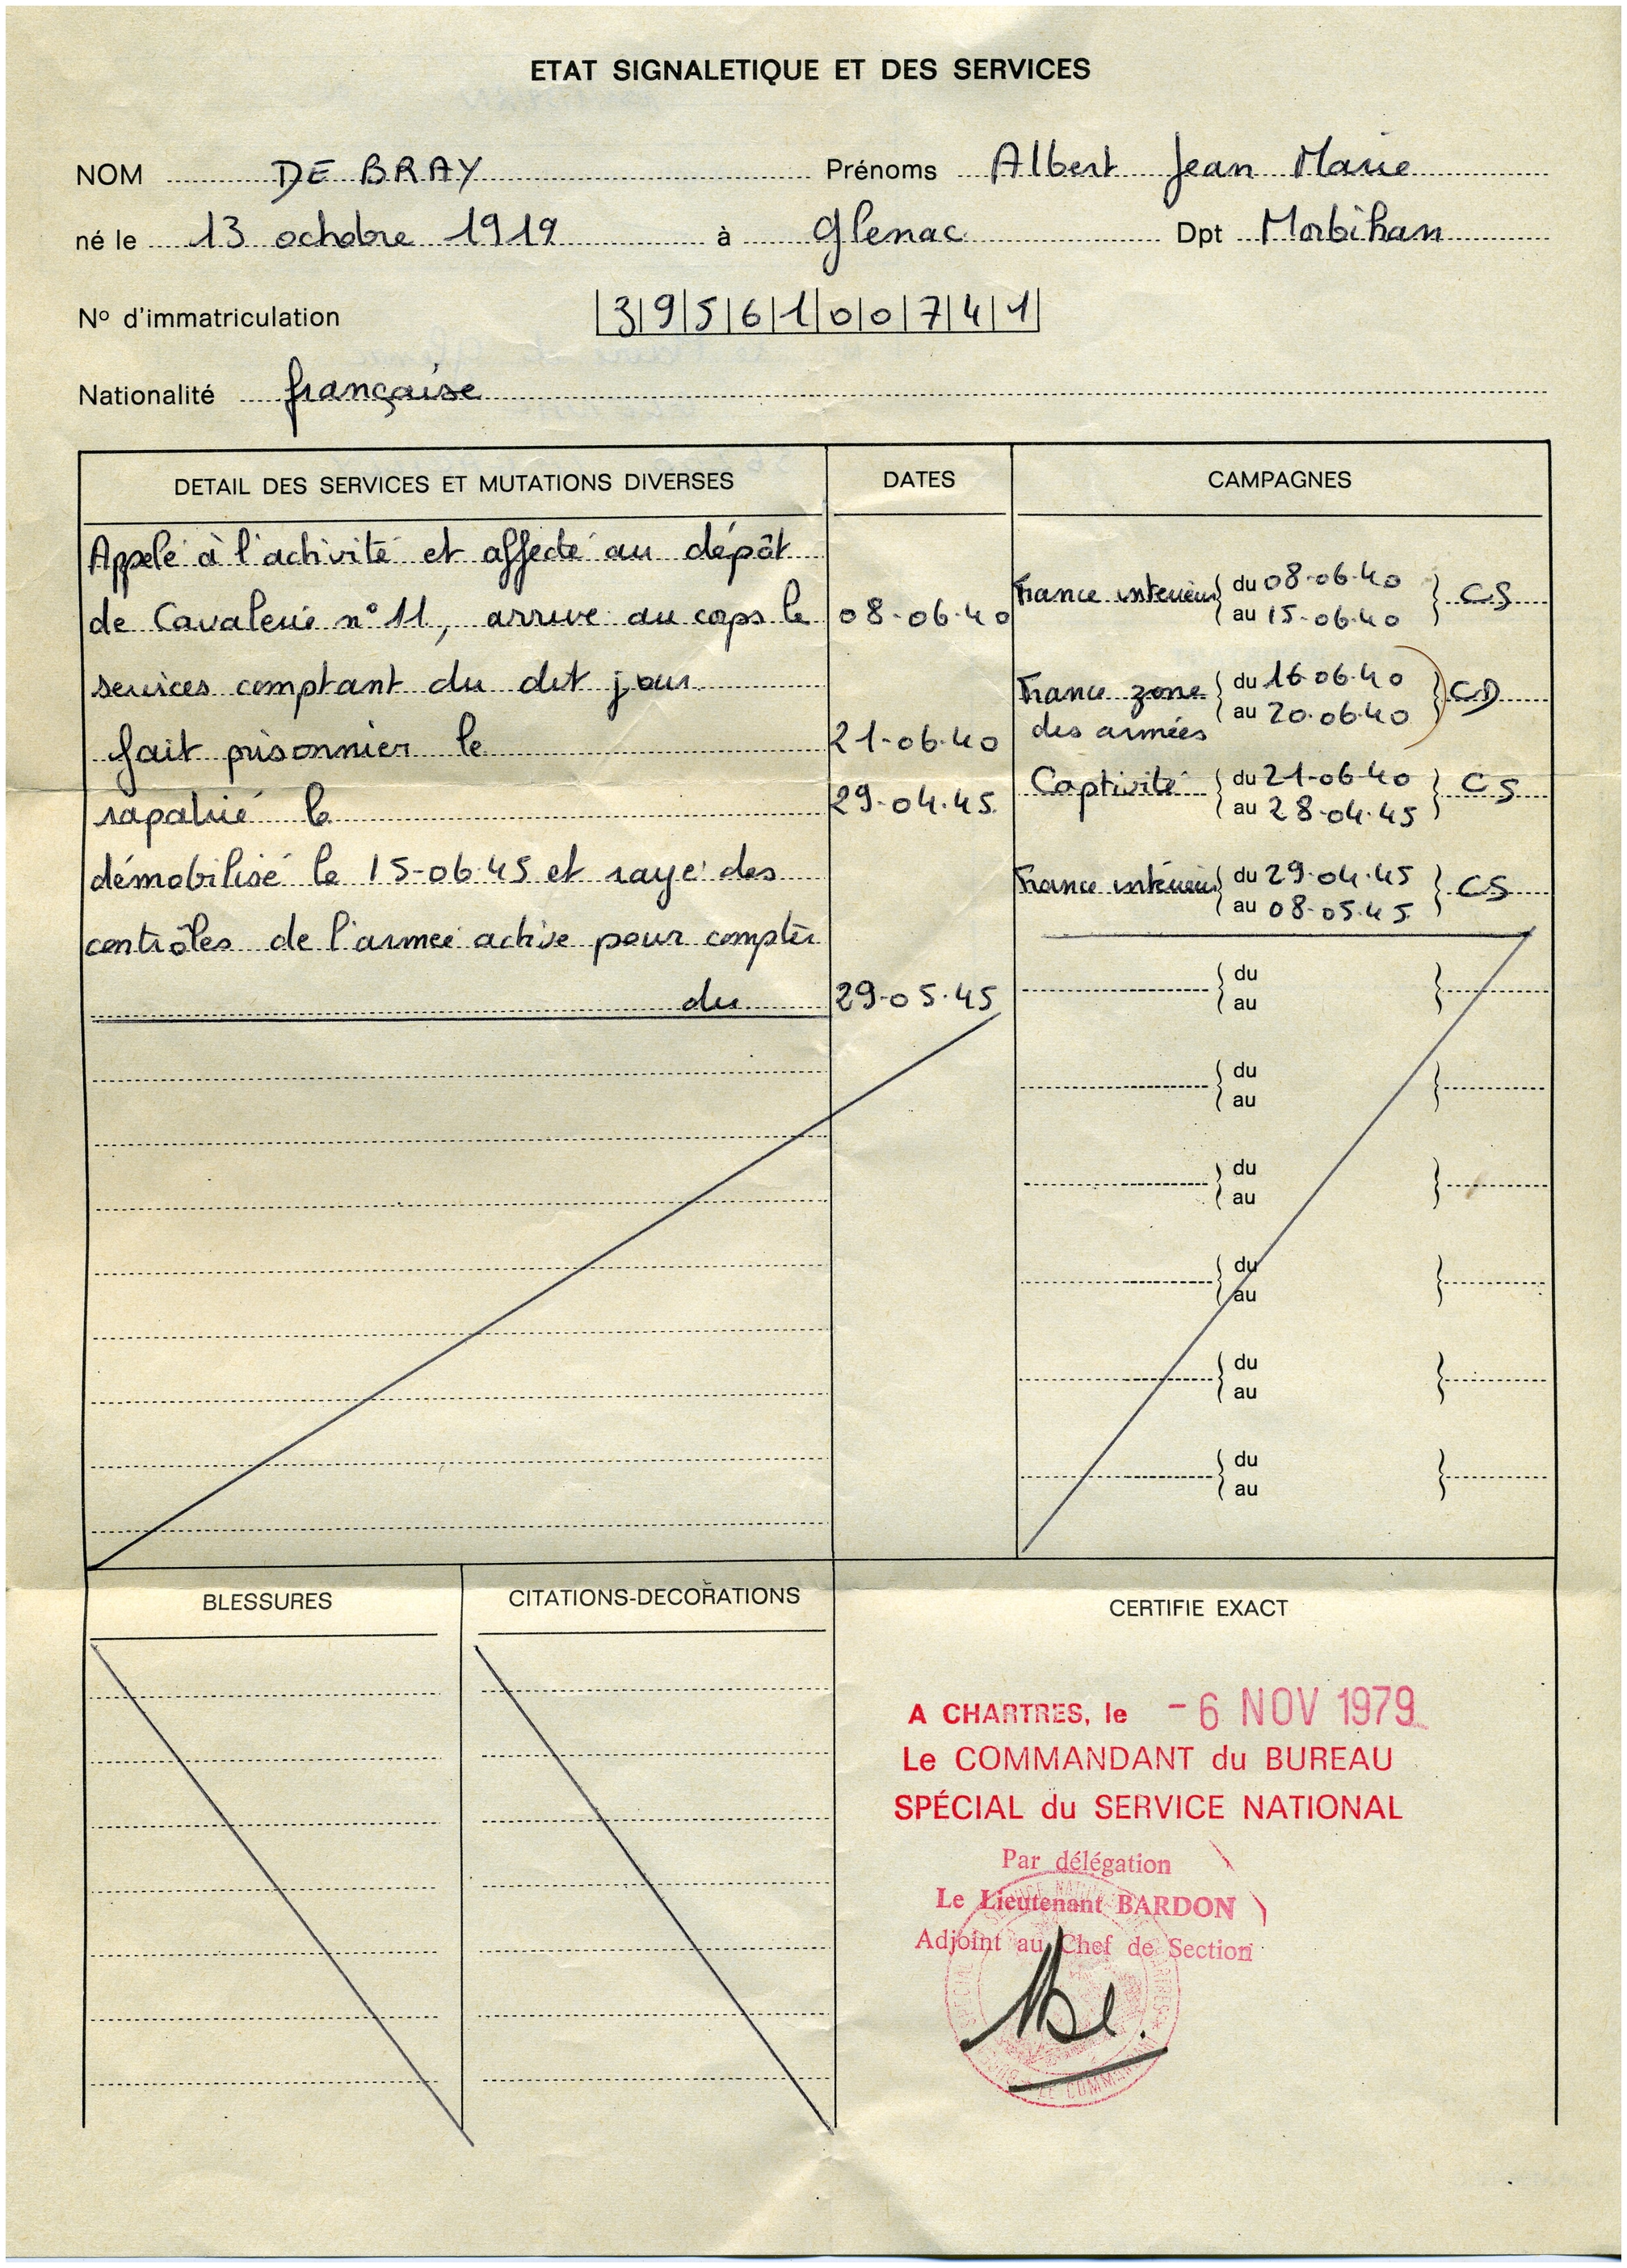 ETAT SIGNALETIQUE ET DES SERVICES
NOM DE BRAY Prénoms Albert Jean Marie
né le 13 octobre 1919 à Glenac Dpt Morbihan
No d'immatriculation 3 9 5 6 1 0 0 7 4 1
Nationalité française
DETAIL DES SERVICES ET MUTATIONS DIVERSES DATES CAMPAGNES
Appelé à l'activité et affecté au dépôt
de Cavalerie n° 11, arrivé au corps le 08-06-40
services comptant du dit jour
fait prisonnier le 21-06-40
rapatrié le 29-04-45
démobilisé le 15-06-45 et rayé des
contrôles de l'armée active pour compter
du 29-05-45
France intérieur du 08-06-40 CS
au 15-06-40
France zone du 16-06-40 CD
des armées au 20-06-40
Captivité du 21-06-40 CS
au 28-04-45
France intérieur du 29-04-45 CS
au 08-05-45
du
au
du
au
du
au
du
au
du
au
du
au
BLESSURES CITATIONS-DECORATIONS CERTIFIE EXACT
A CHARTRES, le -6 NOV 1979
Le COMMANDANT du BUREAU
SPÉCIAL du SERVICE NATIONAL
Par délégation
Le Lieutenant BARDON
Adjoint au Chef de Section